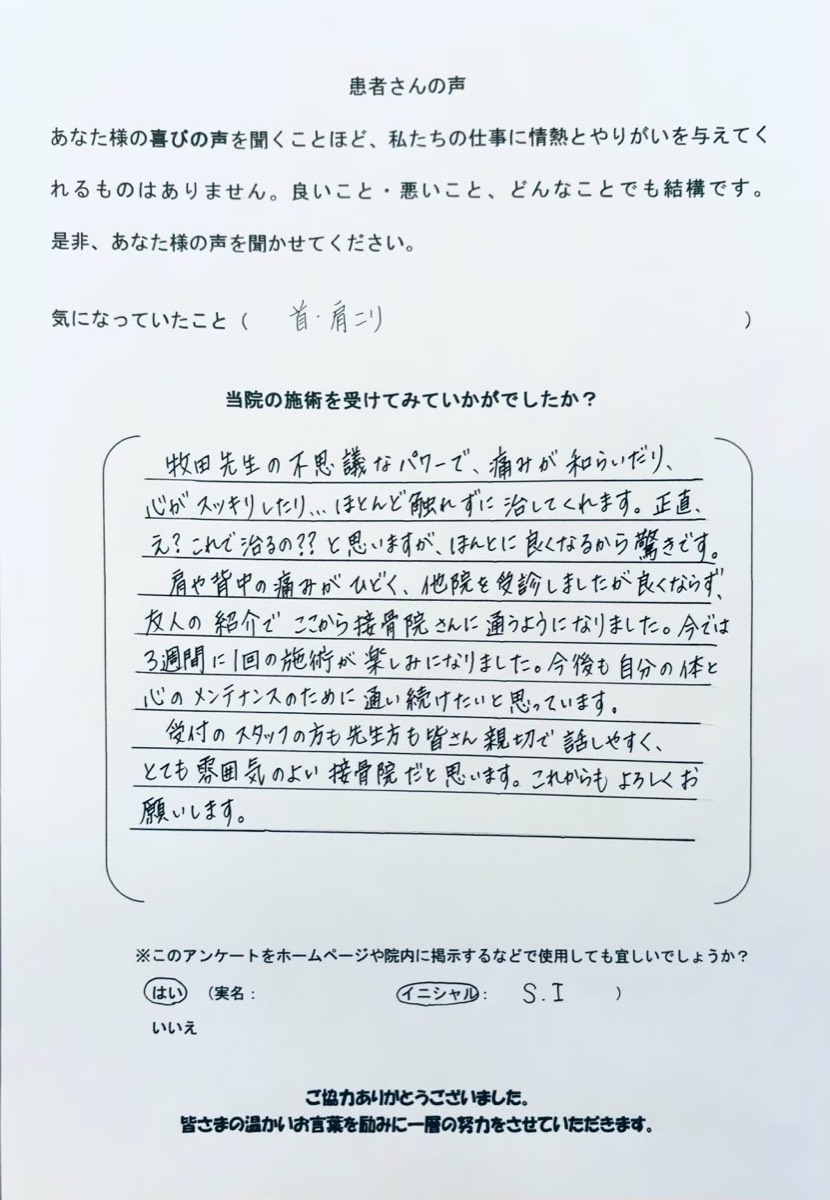 患者さんの声
あなた様の喜びの声を聞くことほど、私たちの仕事に情熱とやりがいを与えてく
れるものはありません。良いこと・悪いこと、どんなことでも結構です。
是非、あなた様の声を聞かせてください。
気になっていたこと（ 首・肩こり ）
当院の施術を受けてみていかがでしたか？
牧田先生の不思議なパワーで、痛みが和らいだり、
心がスッキリしたり…ほとんど触れずに治してくれます。正直、
え？これで治るの？？と思いますが、ほんとに良くなるから驚きです。
肩や背中の痛みがひどく、他院を受診しましたが良くならず、
友人の紹介でここから接骨院さんに通うようになりました。今では
3週間に1回の施術が楽しみになりました。今後も自分の体と
心のメンテナンスのために通い続けたいと思っています。
受付のスタッフの方も先生方も皆さん親切で話しやすく、
とても雰囲気のよい接骨院だと思います。これからもよろしくお
願いします。
※このアンケートをホームページや院内に掲示するなどで使用しても宜しいでしょうか？
はい （実名： イニシャル： S.I ）
いいえ
ご協力ありがとうございました。
皆さまの温かいお言葉を励みに一層の努力をさせていただきます。